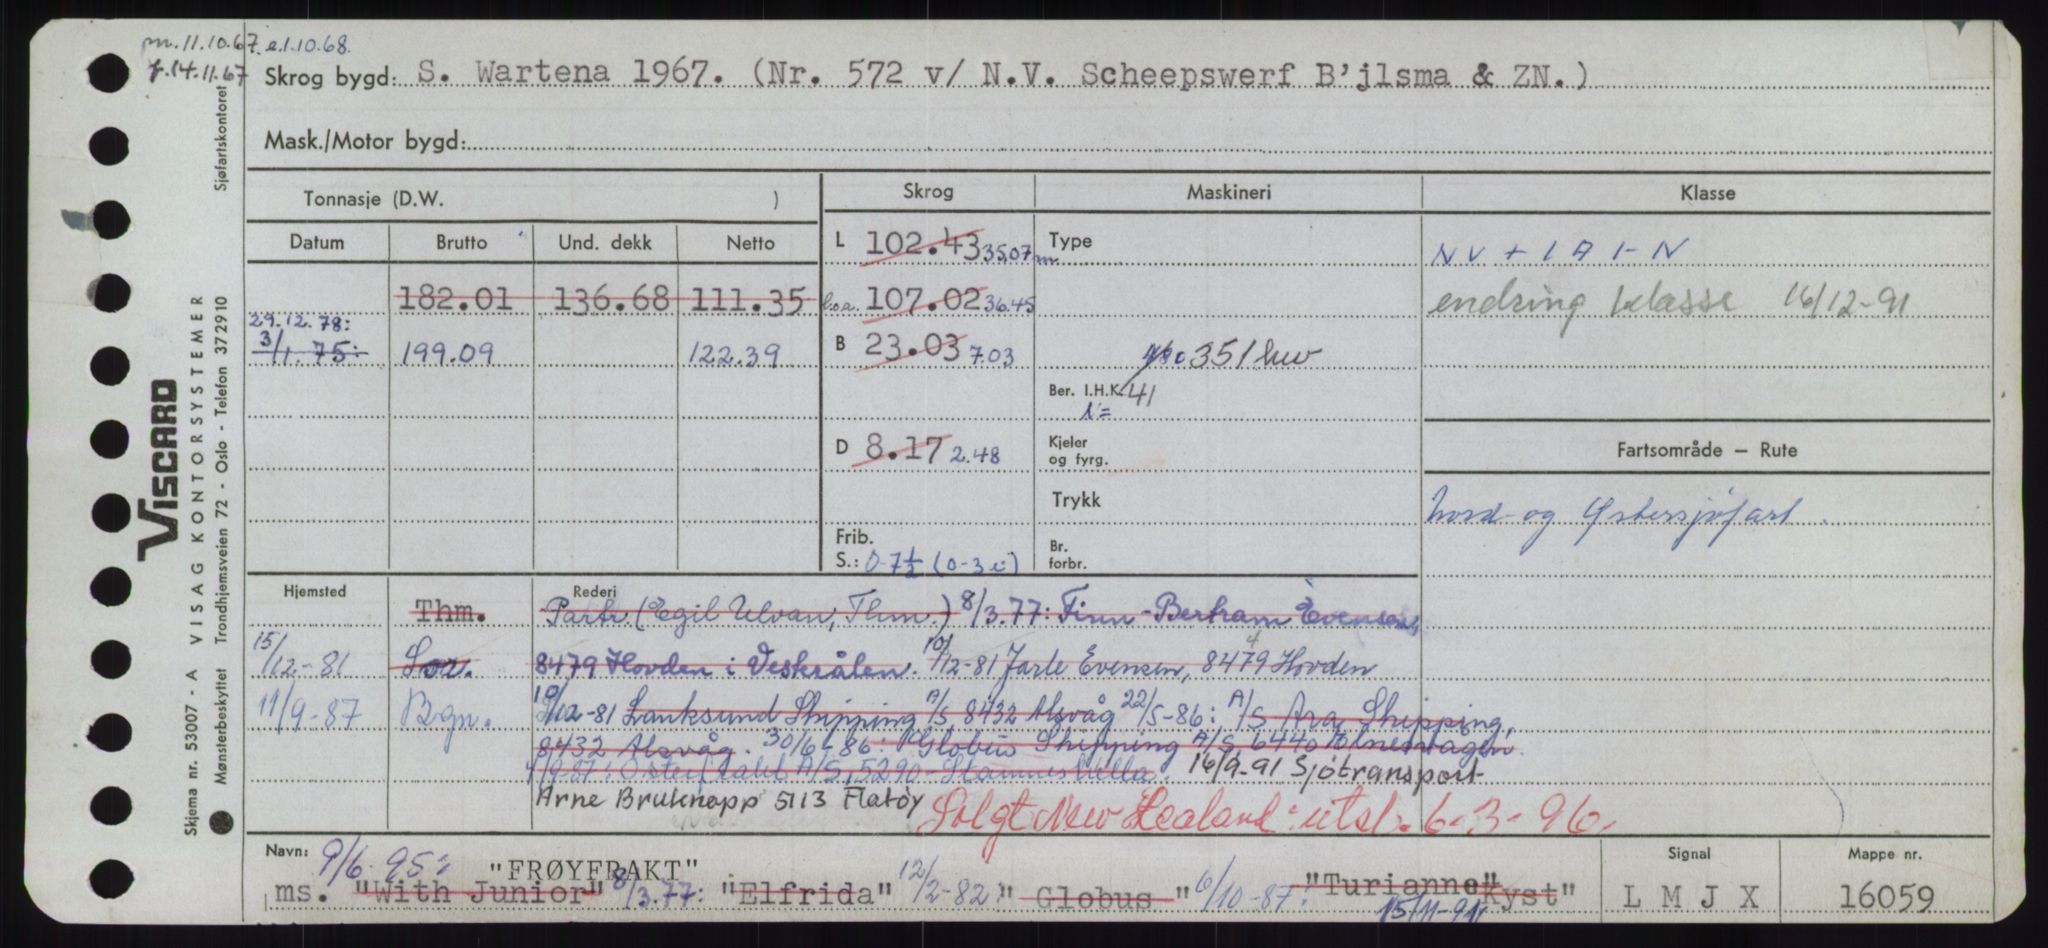 m. 11.10.67. e.1.10.68.
f.14.11.67
Skrog bygd: S. Wartena 1967. (Nr. 572 v/ N.V. Scheepswerf B'jlsma & ZN.)
Mask./Motor bygd:
Tonnasje (D.W. )
Skrog
Maskineri
Klasse
Datum Brutto Und. dekk Netto
L 102.43 35,07 m
Type
NV + 1 A 1 - N
182.01 136.68 111.35
l.o.a. 107.02 36.45
endring klasse 16/12-91
29.12.78:
3/1. 75: 199.09 122.39
B 23.03 7.03
351 kw
Ber. I.H.K. 41
N=
D 8.17 2.48
Kjeler
og fyrg.
Fartsområde – Rute
Trykk
Nord- og Østersjøfart.
Frib.
S.: 0-7½ (0-3 i)
Br.
forbr.
Hjemsted
Rederi
Thm. Partr. (Egil Ulvan, Thm.) 8/3.77: Finn-Bertram Evensen,
15/12-81 Sov. 8479 Hovden i Vesterålen. 10/12-81 Jarle Evensen, 8479 Hovden
11/9-87 Bgn. 10/12-81 Lanksund Shipping A/S 8432 Alsvåg 22/5-86: A/S Ara Shipping,
8432 Alsvåg. 30/6-86: Globus Shipping A/S, 6440 Elnesvågen.
1/9-87: Osterfrakt A/S, 5290-Stamneshella. 16/9-91 Sjøtransport
Arne Bruknapp 5113 Flatøy Solgt New Zealand: utsl. 6-3-96.
Navn: 9/6-95: "FRØYFRAKT"
ms. "With Junior" 8/3.77: "Elfrida" 12/2-82: "Globus" 6/10-87: "Turianne" Kyst"
15/11-91
Signal
L M J X
Mappe nr.
16059
VISCARD
VISAG KONTORSYSTEMER
Skjema nr. 53007 - A
Mønsterbeskyttet Trondhjemsveien 72 - Oslo - Telefon 372910
Sjøfartskontoret